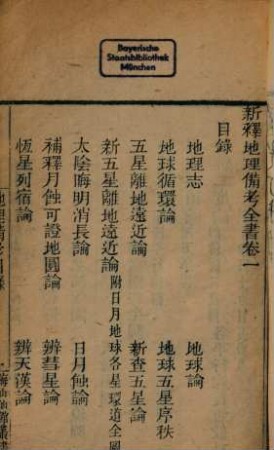 Bayerische
Staatsbibliothek
München
新釋地理備考全書卷一
目錄
地理志
地球論
地球循環論
地球五星序秩
五星離地遠近論
新查五星論
新五星離地遠近論附日月地球各星環道全圖
太陰晦明消長論
日月蝕論
補釋月蝕可證地圓論
辨彗星論
恆星列宿論
辨天漢論
海山仙館叢書